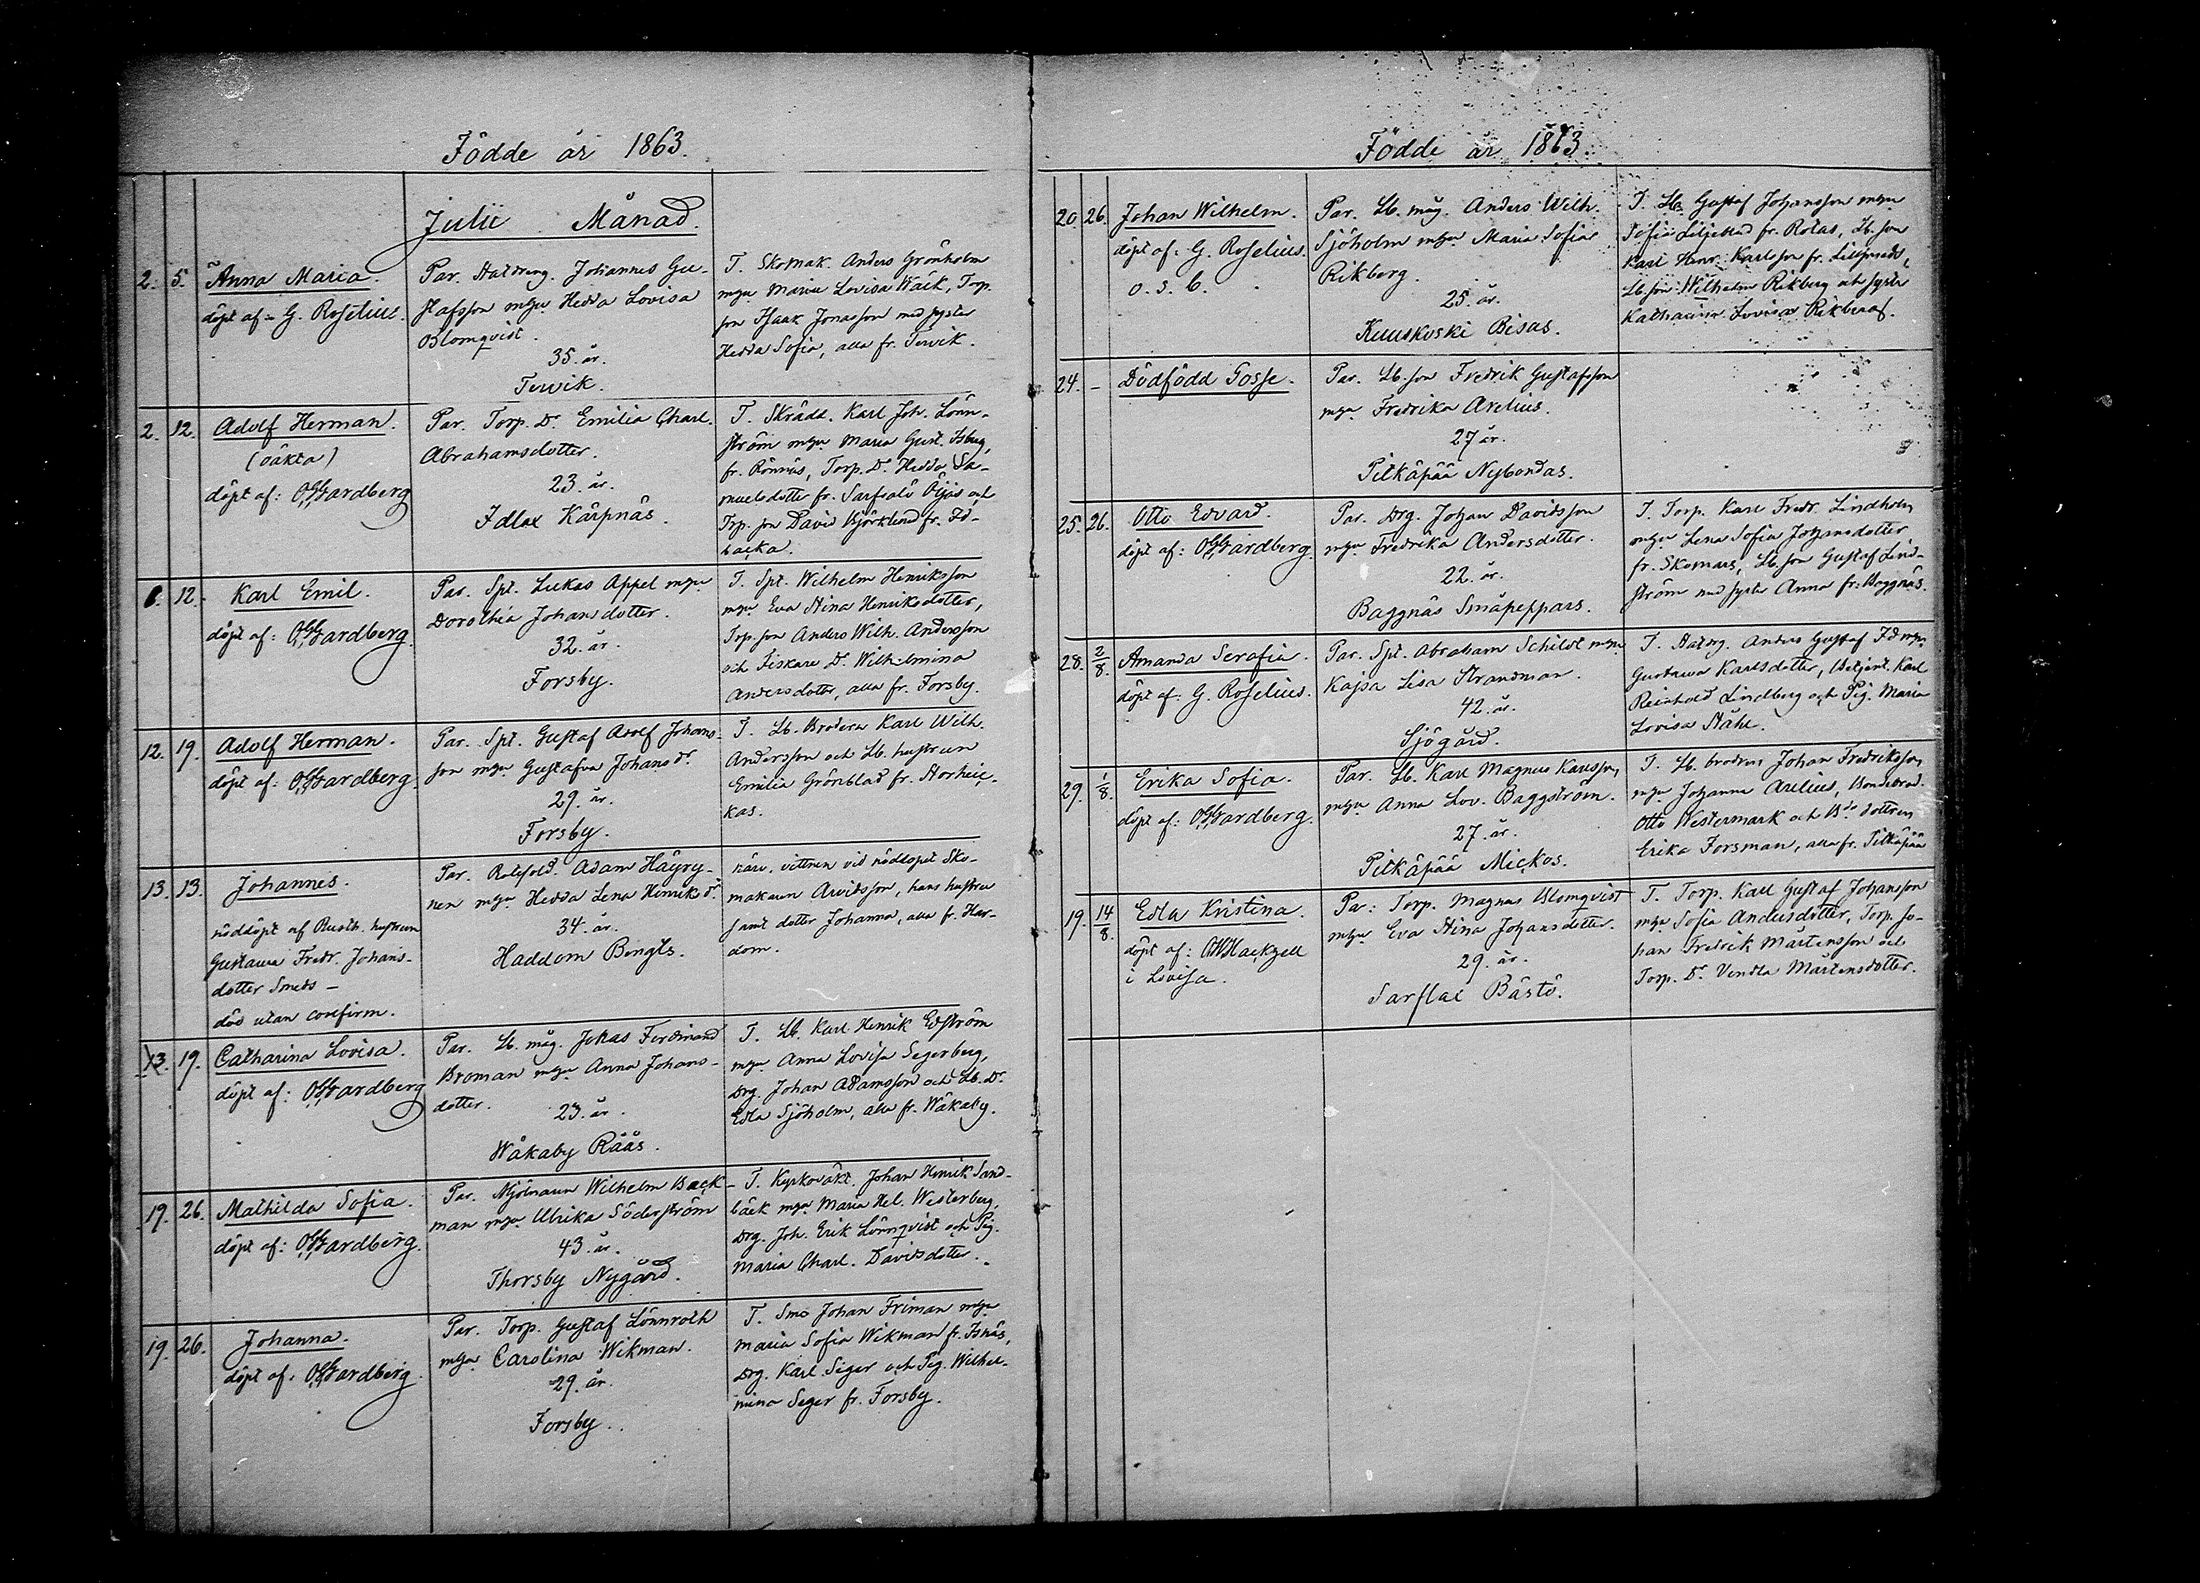 Födde år 1863.
Julii Månad.
2. 5. Anna Maria.
döpt af G. Roselius.
Par. Johannes Gu-
stafsson mgn Hedda Lovisa
Blomqvist.
35. år.
Tervik.
T. Skomak. Anders Grönholm
mgn Maria Lovisa Wäck, Torp.
son Isaak Jonasson med syster
Hedda Sofia, alla fr. Tervik.
2. 12. Adolf Herman.
(oäkta)
döpt af:
Par. Torp. Dr. Emilia Charl.
Abrahamsdotter.
23. år.
Idlax Kärpnäs.
T. Skrädd. Karl Joh. Lönn-
ström mgn Maria Gust.
fr. Rönnäs, Torp. Dr. Hedda Sa-
muelsdotter fr. Sarfsalö och
Trp. son David Björklund fr. Id-
backa.
6. 12. Karl Emil.
döpt af:
Par. Spt. Lukas Appel mgn
Dorothea Johansdotter.
32. år.
Forsby.
T. Spt. Wilhelm Henriksson
mgn Eva Stina Henriksdotter,
Torp. son Anders Wilh. Andersson
och Fiskare Dr. Wilhelmina
Andersdotter, alla fr. Forsby.
12. 19. Adolf Herman.
döpt af:
Par. Spt. Gustaf Adolf Johans-
son mgn Gustafva Johansdr.
29. år.
Forsby.
T. Lb. Brodern Karl Wilh.
Andersson och Lb. hustrun
Emilia Grönblad fr.
kas.
13. 13. Johannes.
nöddöpt af Rusth. hustrun
Gustawa Fredr. Johans-
dotter Smeds –
död utan confirm.
Par. Adam Häyry-
nen mgn Hedda Lena Henriksdr
34. år.
Haddom Bengts.
närv. vittnen vid nöddopet Sko-
makaren Arvidsson, hans hustru
samt dotter Johanna, alla fr. Had-
dom.
13. 19. Catharina Lovisa.
döpt af:
Par. Lb. måg. Johas Ferdinand
Broman mgn Anna Johans-
dotter.
23. år.
Wåkaby Rääs.
T. Lb. Karl Henrik Edström
mgn Anna Lovisa Segerberg,
Drg. Johan Adamsson och Lb. Dr.
Edla Sjöholm, alla fr. Wåkaby.
19. 26. Mathilda Sofia.
döpt af:
Par. Mjölnaren Wilhelm Back-
man mgn Ulrika Söderström
43. år.
Thorsby Nygård.
T. Kyrkovakt. Johan Henrik Sand-
bäck mgn Maria Hel. Westerberg,
Drg. Joh. Erik Lönnqvist och Pig.
Maria Charl. Davidsdotter.
19. 26. Johanna.
döpt af.
Par. Torp. Gustaf Lönnroth
mgn Carolina Wikman.
29. år.
Forsby.
T. Smd Johan Friman mgn
Maria Sofia Wikman fr. Isnäs,
Drg. Karl Seger och Pig. Wilhel-
mina Seger fr. Forsby.
Födde år 1863.
20. 26. Johan Wilhelm.
döpt af: G. Roselius.
o. s. b.
Par. Lb. måg. Anders Wilh.
Sjöholm mgn Maria Sofia
Rikberg.
25. år.
Kuuskoski Bisas.
T. Lb. Gustaf Johansson mgn
Sofia Liljeblad fr. Lb. son
Karl Henr. Karlsson fr.
Lb. son Wilhelm Rikberg och syster
Katharina Lovisa Rikberg.
24. – Dödfödd Gosse.
Par. Lb. son Fredrik Gustafsson
mgn Fredrika Arelius.
27 år.
Pitkäpää Nybondas.
25. 26. Otto Edvard.
döpt af:
Par. Drg. Johan Davidsson
mgn Fredrika Andersdotter.
22. år.
Baggnäs Småpeppars.
T. Torp. Karl Fredr. Lindholm
mgn Lena Sofia Johansdotter
fr. Skomars, Lb. son Gustaf Lind-
ström med syster Anna fr. Baggnäs.
28. 2/8. Amanda Serafia.
döpt af: G. Roselius.
Par. Spt. Abraham Schildt mgn
Kajsa Lisa Strandman.
42. år.
Sjögård.
T. Anders Gustaf Id mgn
Gustawa Karlsdotter, Betjent. Karl
Reinhold Lindberg och Pig. Maria
Lovisa Ståhl.
29. 1/8. Erika Sofia.
döpt af:
Par. Lb. Karl Magnus Karlsson,
mgn Anna Lov. Baggström.
27. år.
Pitkäpää Mickos.
T. Lb. brodren Johan Fredriksson,
mgn Johanna Arelius, Bondebrod.
Otto Westermark och Bde dottren
Erika Forsman, alla fr. Pitkäpää
19. 14/8. Edla Kristina.
döpt af: Hackzell
i Lovisa.
Par: Torp. Magnus Blomqvist
mgn Eva Stina Johansdotter.
29. år.
Sarflax Bästö.
T. Torp. Karl Gustaf Johansson
mgn Sofia Andersdotter, Torp. Jo-
han Fredrik Mårtensson och
Torp. Dr. Vendla Mårtensdotter.